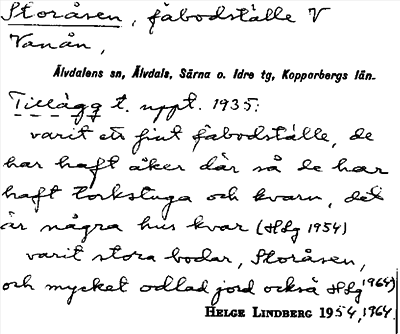 Storåsen, fäbodställe V
Vanån,
Älvdalens sn, Älvdals, Särna o. Idre tg, Kopparbergs län.
Tillägg t. uppt. 1935:
varit ett fint fäbodställe, de
har haft åker där så de har
haft torkstuga och kvarn, det
är några hus kvar (HLg 1954)
varit stora bodar, Storåsen,
och mycket odlad jord också HLg 1964)
HELGE LINDBERG 1954, 1964.